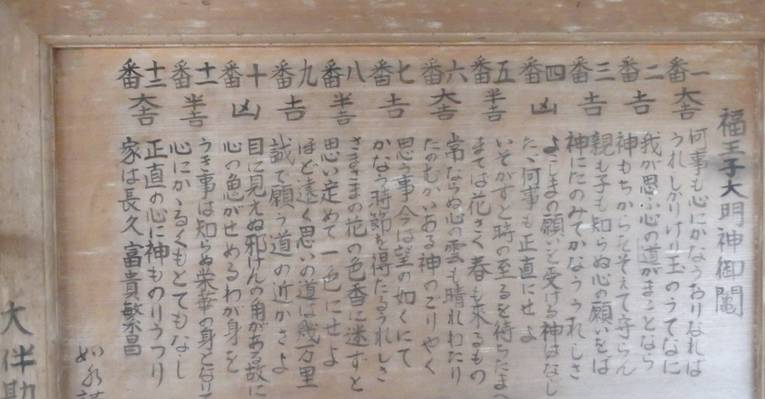 福王子大明神御鬮
一番 大吉 何事も心にかなうおりなれば
うれしかりけり玉のうてなに
二番 吉 我が思ふ心の道がまことなら
神もちからをそえて守らん
三番 吉 親も子も知らぬ心の願いをば
神にたのみてかなううれしさ
四番 凶 よこしまの願いを受ける神はなし
たゞ何事も正直にせよ
五番 半吉 いそがずと時の至るを待ちたまへ
まては花さく春も来るもの
六番 大吉 常ならぬ心の雲も晴れわたり
たのむかいある神のごりやく
七番 吉 思う事今は望の如くにて
かなう時節を得たるうれしさ
八番 半吉 さまざまの花の色香に迷すと
思い定めて一色にせよ
九番 吉 ほど遠く思いの道は幾万里
誠で願う道の近かさよ
十番 凶 目に見えぬ邪けんの角がある故に
心の鬼がせめるわが身を
十一番 半吉 うき事は知らぬ栄華の身となりて
心にかゝるくもとてもなし
十二番 大吉 正直の心に神ものりうつり
家は長久富貴繁昌
大伴助